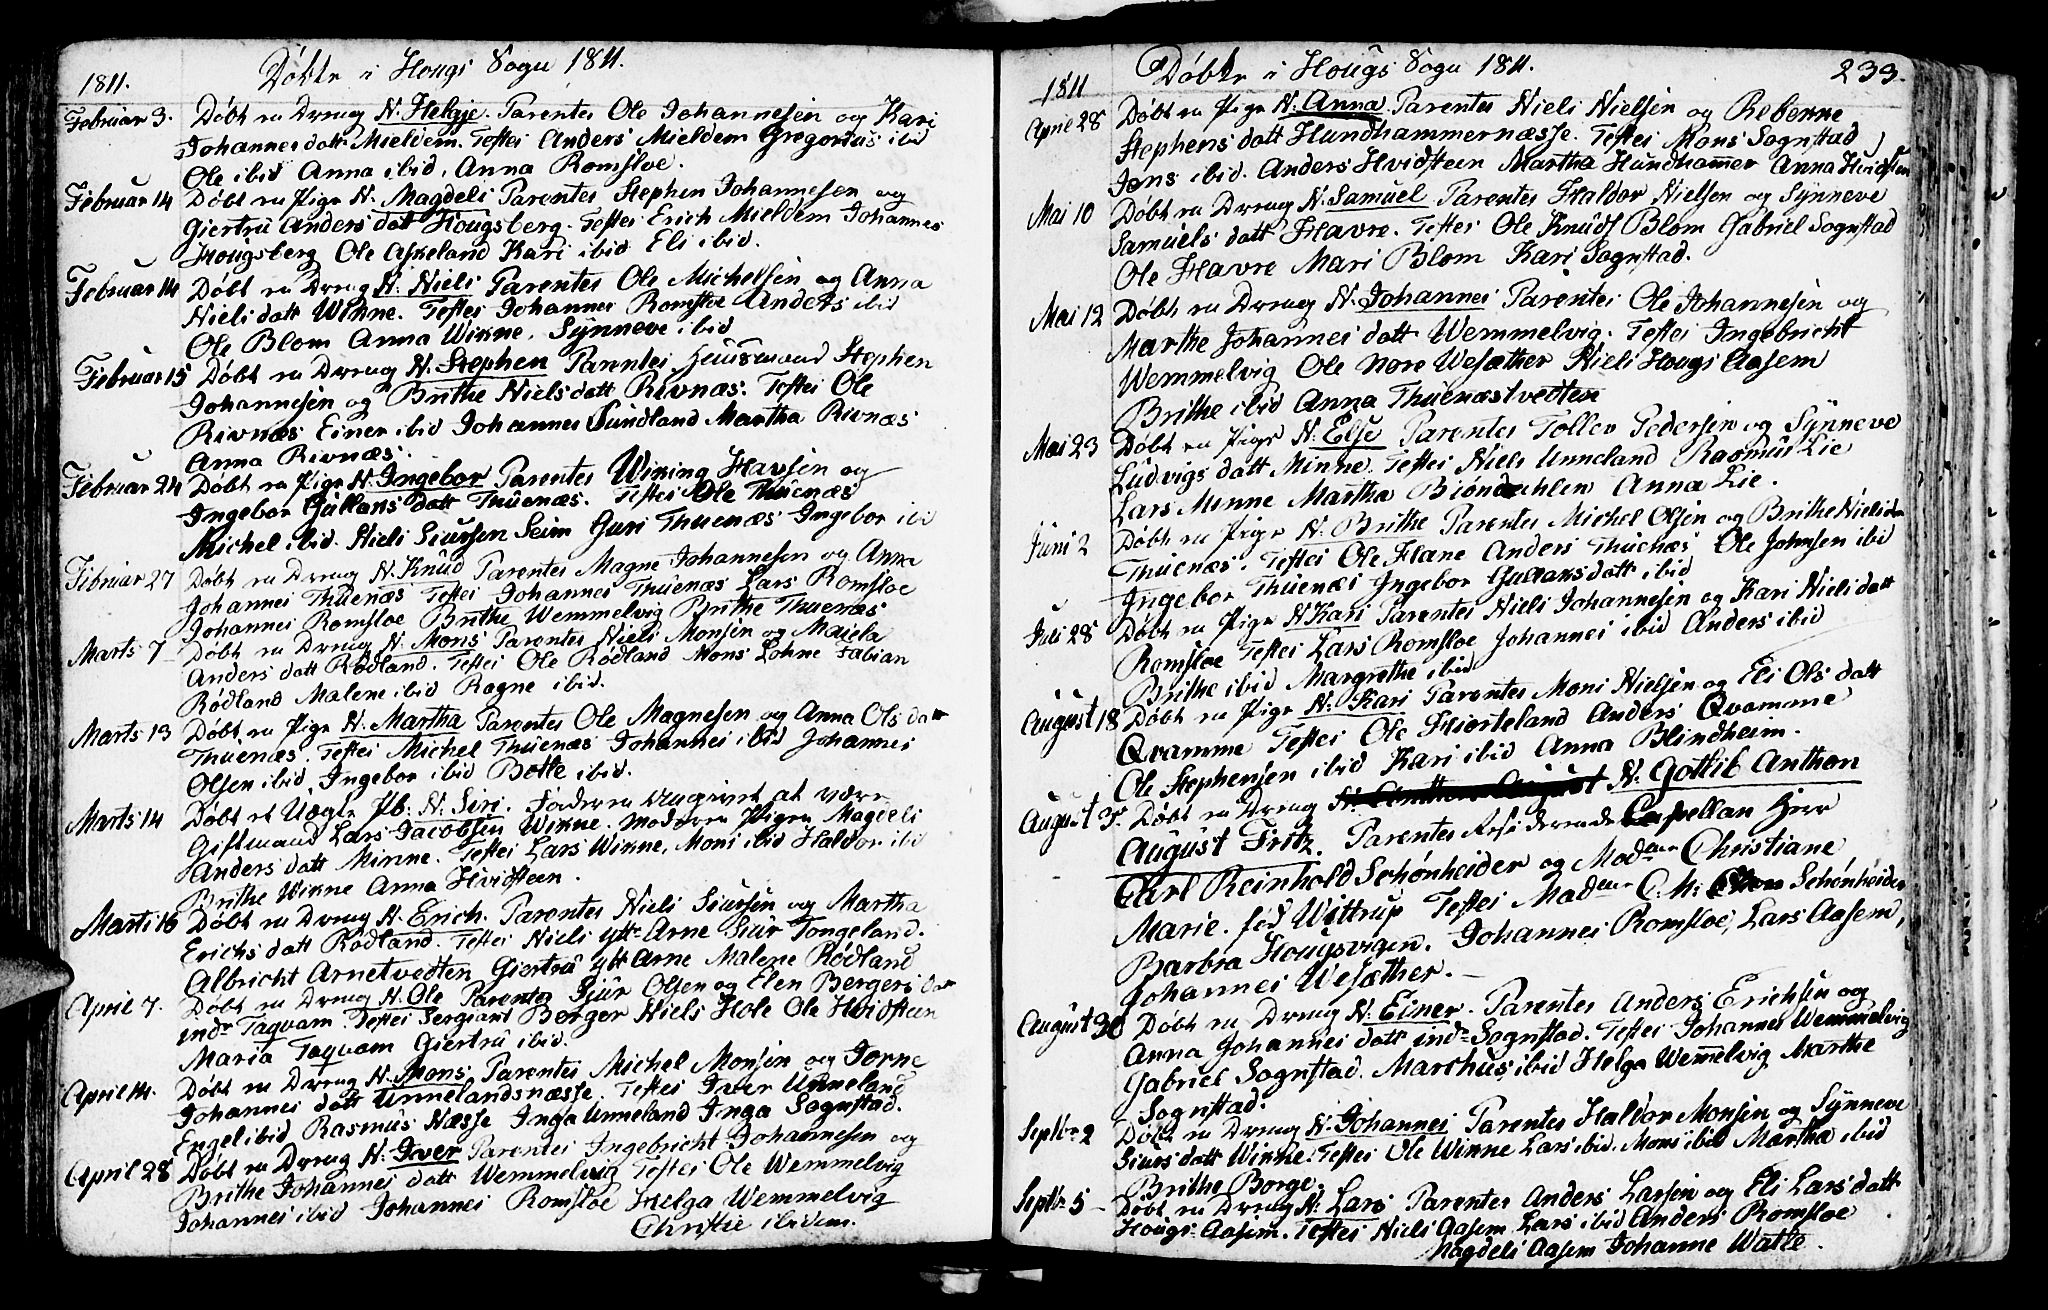 1811. Döbte i Hougs Sogn 1811.
Februar 3. Döbt en Dreng N. Helgje. Parentes Ole Johannesen og Kari
Johannes datt Mieldem. Testes Anders Mieldem Gregorius ibid
Ole ibid Anna ibid, Anna Romsloe.
Februar 14 Döbt en Pige N. Magdeli Parentes Stephen Johannesen og
Giertrü Anders datt Hougsberg. Testes Erich Mieldem Johannes
Hougsberg Ole Askeland Kari ibid Eli ibid.
Februar 14 Döbt en Dreng N. Niels Parentes Ole Michelsen og Anna
Niels datt Winne. Testes Johannes Romsloe Anders ibid
Ole Blom Anna Winne, Synneve ibid
Februar 15 Döbt en Dreng N. Stephen Parentes Huusmand Stephen
Johannesen og Brithe Niels datt Rivnæs. Testes Ole
Rivnæs Einer ibid Johannes Sundland Martha Rivnæs
Anna Rivnæs.
Februar 24 Döbt en Pige N. Ingebor Parentes Wiking Havsen og
Ingebor Gullaks datt Thuenæs. Testes Ole Thuenæs
Michel ibid. Niels Siursen Seim Guri Thuenæs Ingebor ibid
Februar 27 Döbt en Dreng N. Knud Parentes Magne Johannesen og Anna
Johannes Thuenæs Testes Johannes Thuenæs Lars Romsloe
Johannes Romsloe Brithe Wemmelvig Brithe Thuenæs
Marts 7 Döbt en Dreng N. Mons Parentes Niels Monsen og Maiela
Anders datt Rödland. Testes Ole Rödland Mons Lohne Fabian
Rödland Malene ibid Ragne ibid.
Marts 13 Döbt en Pige N. Martha Parentes Ole Magnesen og Anna Ols datt
Thuenæs. Testes Michel Thuenæs Johannes ibid Johannes
Olsen ibid, Ingebor ibid Botle ibid.
Marts 14 Döbt et Uægte Pb. N. Siri. Faderen angivet at være
Giftmand Lars Jacobsen Winne. Moderen Pigen Magdeli
Anders datt Minne. Testes Lars Winne, Mons ibid Haldor ibid
Brithe Winne Anna Hvidsteen.
Marts 16 Döbt en Dreng N. Erich. Parentes Niels Siursen og Martha
Erichs datt Rödland. Testes Niels ytt: Arne Siur Tongeland.
Albricht Arnetvedten Giertrü ytt Arne Malene Rödland
April 7. Döbt en Dreng N. Ole Parentes Siur Olsen og Elen Bergers datt
indr Taqvam. Testes Sergiant Berger Niels Hole Ole Hvidsteen
Maria Taqvam Giertrü ibid.
April 14. Döbt en Dreng N. Mons Parentes Michel Monsen og Jorne
Johannes datt Unnelandsnæsse. Testes Iver Unneland
Engel ibid Rasmus Næsse Inga Unneland Inga Sognstad.
April 28 Döbt en Dreng N. Iver Parentes Ingebricht Johannesen og
Brithe Johannes datt Wemmelvig Testes Ole Wemmelvig
Johannes ibid Johannes Romsloe Helga Wemmelvig
Christie ibidem.
1811 Döbte i Hougs Sogn 1811. 233.
April 28 Döbt en Pige N. Anna. Parentes Niels Nielsen og Rebenne
Stephens datt Hundhammernæsse. Testes Mons Sognstad
Jens ibid. Anders Hvidsteen Martha Hundhammer Anna Hvidsteen
Mai 10 Döbt en Dreng N. Samuel Parentes Haldor Nielsen og Synneve
Samuels datt Havre. Testes Ole Knuds Blom Gabriel Sognstad
Ole Havre Mari Blom Kari Sognstad.
Mai 12 Döbt en Dreng N. Johannes Parentes Ole Johannesen og
Marthe Johannes datt Wemmelvig. Testes Ingebricht
Wemmelvig Ole Nore Wesæther Niels Hougs Aasem
Brithe ibid Anna Thuenæstvedten
Mai 23 Döbt en Pige N. Else Parentes Tollev Pedersen og Synneve
Ludvigs datt Minne. Testes Niels Unneland Rasmus Lie
Lars Minne Martha Biöndahlen Anna Lie.
Juni 2 Döbt en Pige N. Brithe Parentes Michel Olsen og Brithe Niels datt
Thuenæs. Testes Ole Hane Anders Thuenæs Ole Johnsen ibid
Ingebor Thuenæs Ingebor Gullaks datt ibid
Juli 28 Döbt en Pige N. Kari Parentes Niels Johannesen og Kari Niels datt
Romsloe Testes Lars Romsloe Johannes ibid Anders ibid
Brithe ibid Margrethe ibid
August 18 Döbt en Pige N. Kari Parentes Mons Nielsen og Eli Ols datt
Qvamme Testes Ole Hiorteland Anders Qvamme
Ole Stephensen ibid Kari ibid Anna Blindheim.
August Döbt en Dreng N. Gottlib Anthon
August Fritz. Parentes Residerende Capellan Herr
Carl Reinhold Schönheider og Madme Christiane
Marie. föd Wittrup Testes Madme C. M: Schönheider
Barbra Hougsvigen. Johannes Romsloe, Lars Aasem,
Johannes Wesæther.
August 30 Döbt en Dreng N. Einer. Parentes Anders Erichsen og
Anna Johannes datt indr Sognstad. Testes Johannes Wemmelvig
Gabriel Sognstad. Marchus ibid Helga Wemmelvig Marthe
Sognstad.
Septbr 2 Döbt en Dreng N. Johannes Parentes Haldor Monsen og Synneve
Siurs datt Winne. Testes Ole Winne Lars ibid. Mons ibid Martha ibid
Brithe Borge.
Septbr 5 Döbt en Dreng N. Lars Parentes Anders Larsen og Eli Lars datt
Hougs Aasem. Testes Niels Aasem Lars ibid Anders Romsloe
Magdeli Aasem Johanne Watle.